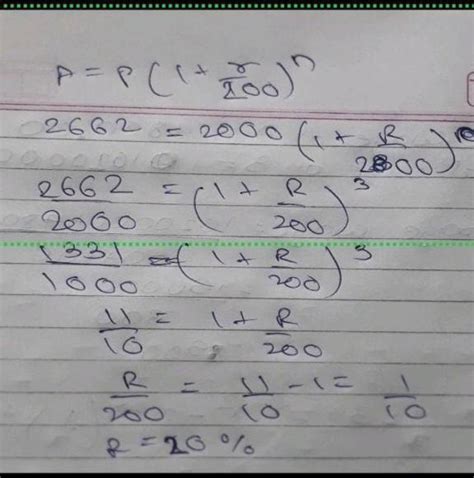 A = P (1 + r/200)^n
2662 = 2000 (1 + R/200)
2662/2000 = (1 + R/200)^3
1331/1000 = (1 + R/200)^3
11/10 = 1 + R/200
R/200 = 11/10 - 1 = 1/10
R = 20 %